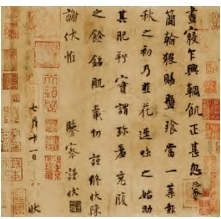 晝寢乍興輖飢正甚忽蒙
簡翰猥賜盤飧當一葉報
秋之初乃韭花逞味之始助
其肥羜實謂珍羞充腹
之餘銘肌載切謹修狀陳
謝伏惟
鑒察謹狀
七月十一日 狀